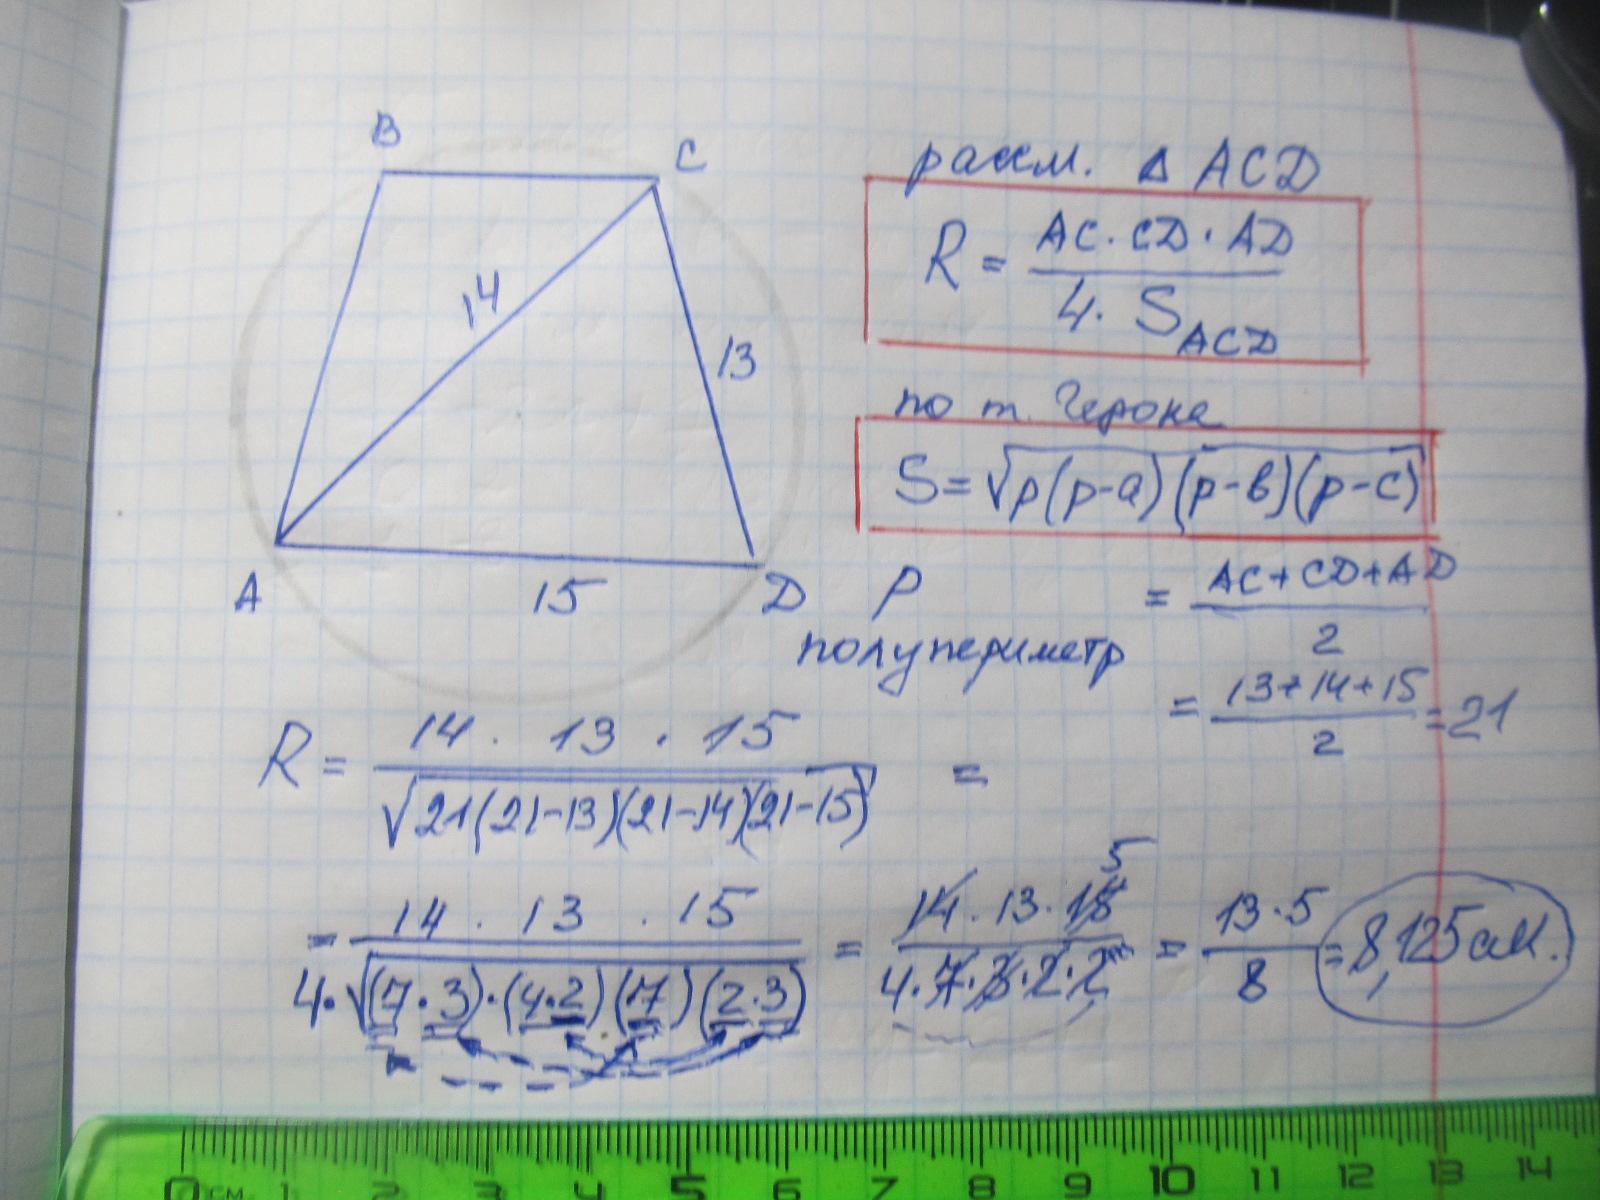 B
C
14
13
A
15
D
рассм. Δ ACD
R = AC · CD · AD / 4 · S ACD
по т. Герона
S = √p(p-a)(p-в)(p-c)
P полупериметр = AC + CD + AD / 2
= 13 + 14 + 15 / 2 = 21
R = 14 · 13 · 15 / √21(21-13)(21-14)(21-15) =
= 14 · 13 · 15 / 4·√(7·3)·(4·2)(7)(2·3) = 14 · 13 · 15 5 / 4·7·3·2·2 = 13·5 / 8 = 8,125 см.
0 см. 1 2 3 4 5 6 7 8 9 10 11 12 13 14